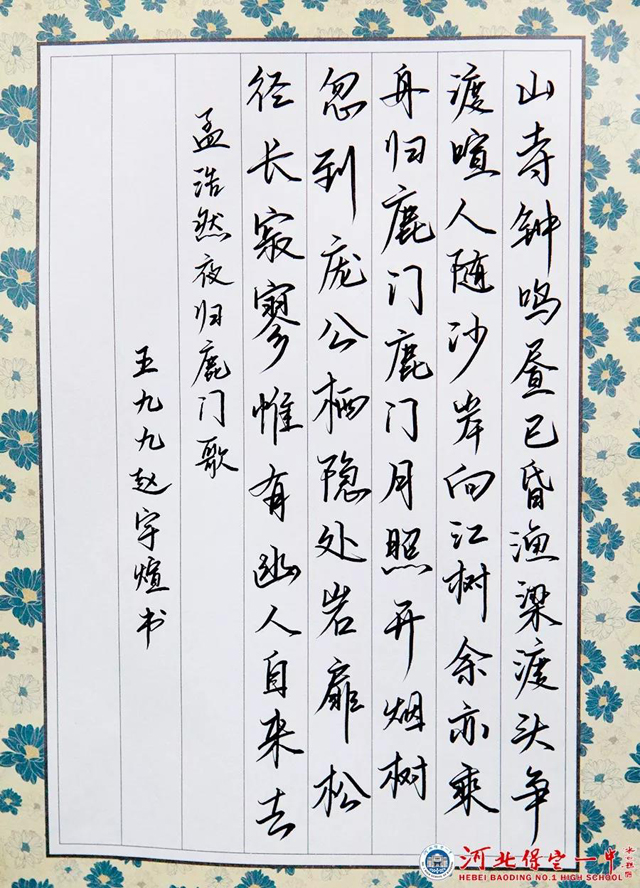 山寺钟鸣昼已昏渔梁渡头争
渡喧人随沙岸向江树余亦乘
舟归鹿门鹿门月照开烟树
忽到庞公栖隐处岩扉松
径长寂寥惟有幽人自来去
孟浩然夜归鹿门歌
王九九赵宇煊书
河北保定一中
HEBEI BAODING NO.1 HIGH SCHOOL